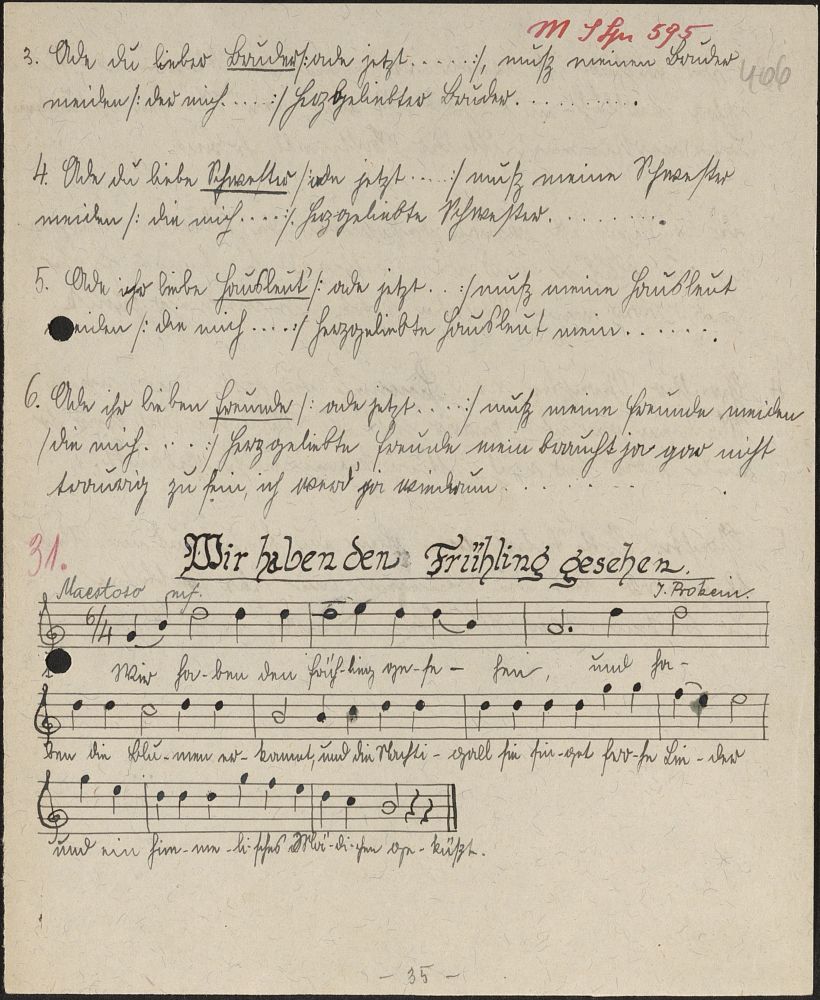 M 5 Spr 595
406
3. Ade du lieber Bruder /: ade jetzt.....:/, muß meinen Bruder
meiden /: der mich....:/ herzgeliebter Bruder...........
4. Ade du liebe Schwester /: ade jetzt....:/ muß meine Schwester
meiden /: die mich....:/. herzgeliebte Schwester.........
5. Ade ihr liebe Hausleut' /: ade jetzt..:/ muß meine Hausleut
meiden /: die mich....:/ herzgeliebte Hausleut mein......
6. Ade ihr lieben Freunde /: ade jetzt....:/ muß meine Freunde meiden
/die mich....:/ herzgeliebte Freunde mein braucht ja gar nicht
traurig zu sein, ich werd' ja wiederum......
31. Wir haben den Frühling gesehen.
Maestoso mf. J. Prokein.
6/4
Wir ha-ben den Früh-ling ge-se-hen, und ha-
ben die Blu-men er-kannt, und die Nachti-gall sie sin-get fro-he Lie-der
und ein him-me-li-sches Mä-di-chen ge-küßt.
- 35 -